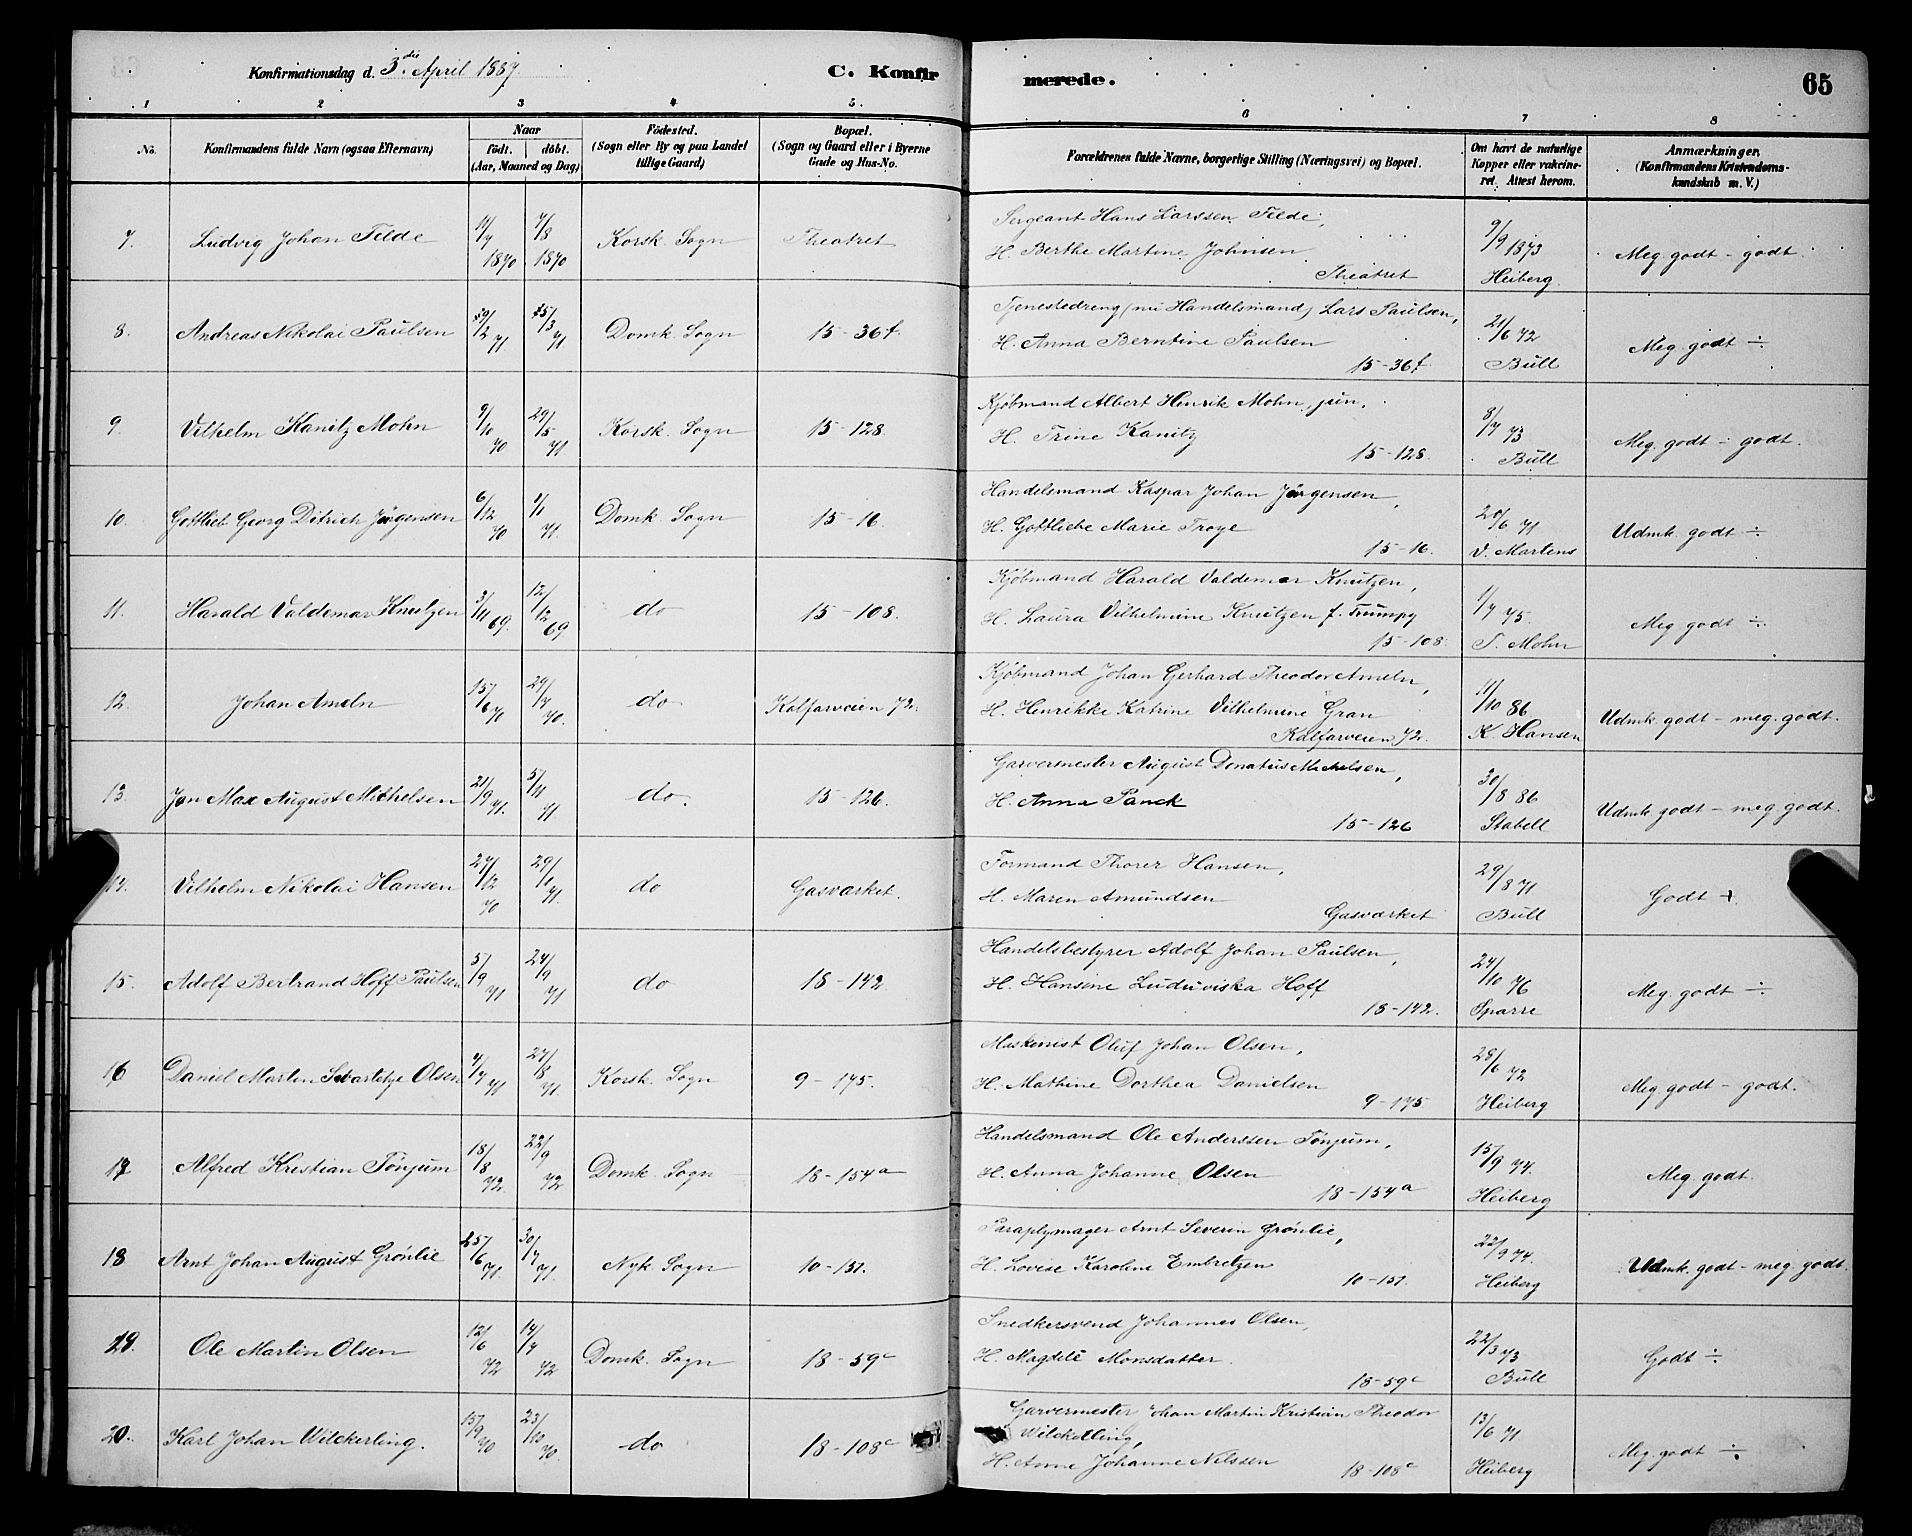 Konfirmationsdag d. 3die April 1887. C. Konfirmerede. 65
1 2 3 4 5. 6 7 8
No. Konfirmandens fulde Navn (ogsaa Efternavn) Naar födt. döbt. (Aar, Maaned og Dag) Födested. (Sogn eller By og paa Landet tillige Gaard) Bopæl. (Sogn og Gaard eller i Byerne Gade og Hus-No. Forældrenes fulde Navne, borgerlige Stilling (Næringsvei) og Bopæl. Om havt de naturlige Kopper eller vakcineret. Attest herom. Anmærkninger. (Konfirmandens Kristendomskundskab m. V.)
7. Ludvig Johan Tilde 11/7 1870 7/8 1870 Korsk. Sogn Theatret Sergeant Hans Larssen Tilde, 9/9 1873 Meg. godt - godt.
H. Berthe Martine Johnsen
Theatret Heiberg
8. Andreas Nikolai Paulsen 19/2 71 15/3 71 Domk. Sogn 15-36f. Tjenestedreng (nu Handelsmand) Lars Paulsen, 21/6 72 Meg. godt ÷
H. Anna Berntine Paulsen
15-36f Bull
9. Vilhelm Kanitz Mohn 9/10 70 29/5 71 Korsk. Sogn 15-128. Kjöbmand Albert Henrik Mohn, jun. 8/7 73 Meg. godt ÷ godt.
H. Trine Kanitz
15-128. Bull
10. Gottlieb Georg Ditrich Jörgensen 6/12 70 1/1 71. Domk. Sogn 15-16 Handelsmand Kaspar Johan Jörgensen, 20/6 71 Udmk. godt ÷
H. Gottliebe Marie Troye
15-16. V. Martens
11. Harald Valdemar Knutzen 3/11 69. 12/12 69. do 15-108. Kjöbmand Harald Valdemar Knutzen, 1/7 75. Meg godt ÷
H. Laura Vilhelmine Knutzen f. Trumpy
15-108. T. Mohn
12. Johan Ameln 15/6 70 29/7 70. do Kalfarveien 72. Kjöbmand Johan Gerhard Theodor Ameln, 11/10 86 Udmk. godt - meg. godt.
H. Henrikke Katrine Vilhelmine Gran
Kalfarveien 72. K. Hansen
13. Jan Max August Michelsen 21/9 71. 5/11 71 do. 15-126. Garvermester August Donatus Michelsen, 30/8 86 Udmk. godt - meg godt.
H. Anna Panck
15-126 Stabell
Vilhelm Nikolai Hansen 27/12 70 29/1 71. do Gasværket. Formand Thorer Hansen, 29/8 71 Godt +.
H. Maren Amundsen
Gasværket Bull
15. Adolf Bertrand Hoff Paulsen 5/9 71 24/9 71 do 18-142 Handelsbestyrer Adolf Johan Paulsen, 24/10 76 Meg. godt ÷
H. Hansine Luduviska Hoff
18-142. Sparre
16 Daniel Martin Svartetje Olsen 4/7 71 27/8 71. Korsk. Sogn 9-175. Maskenist Oluf Johan Olsen, 28/6 72 Meg godt - godt.
H. Mathine Dorthea Danielsen
9-175 Heiberg
17. Alfred Kristian Tönjum 18/8 72. 22/9 72 Domk. Sogn 18-154a Handelsmand Ole Anderssen Tönjum, 15/9 74. Meg. godt.
H. Anna Johanne Olsen
18-154a Heiberg
18 Arnt Johan August Grönlie 25/6 71. 30/7 71. Nyk. Sogn 10-151. Paraplymager Arnt Severin Grönlie, 22/9 74. Udmk. godt - meg. godt.
H. Lovise Karoline Embretzen
10-151. Heiberg
19. Ole Martin Olsen 12/6 72 14/7 72 Domk. Sogn 18-59c Snedkersvend Johannes Olsen, 22/3 73 Godt ÷
H. Magdele Monsdatter.
18-59c Bull
20. Karl Johan Wilckerling. 15/9 70 23/10 70. do 18-108c Garvermester Johan Martin Kristian Theodor 13/6 71 Meg. godt ÷
Wilckelling,
H. Anne Johanne Nilssen 18-108c Heiberg